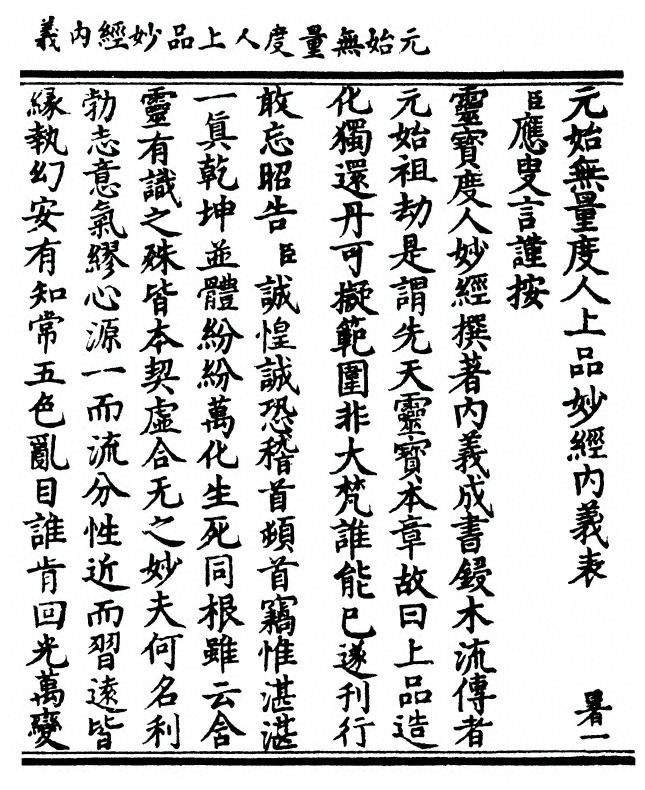 元始無量度人上品妙經內義
元始無量度人上品妙經內義表 暑一
臣應叟言謹按
靈寶度人妙經撰著內義成書鋟木流傳者
元始祖劫是謂先天靈寶本章故曰上品造
化獨還丹可擬範圍非大梵誰能已遂刊行
敢忘昭告臣誠惶誠恐稽首頓首竊惟湛湛
一眞乾坤並體紛紛萬化生死同根雖云含
靈有識之殊皆本契虛合无之妙夫何名利
勃志意氣繆心源一而流分性近而習遠皆
緣執幻安有知常五色亂目誰肯回光萬變